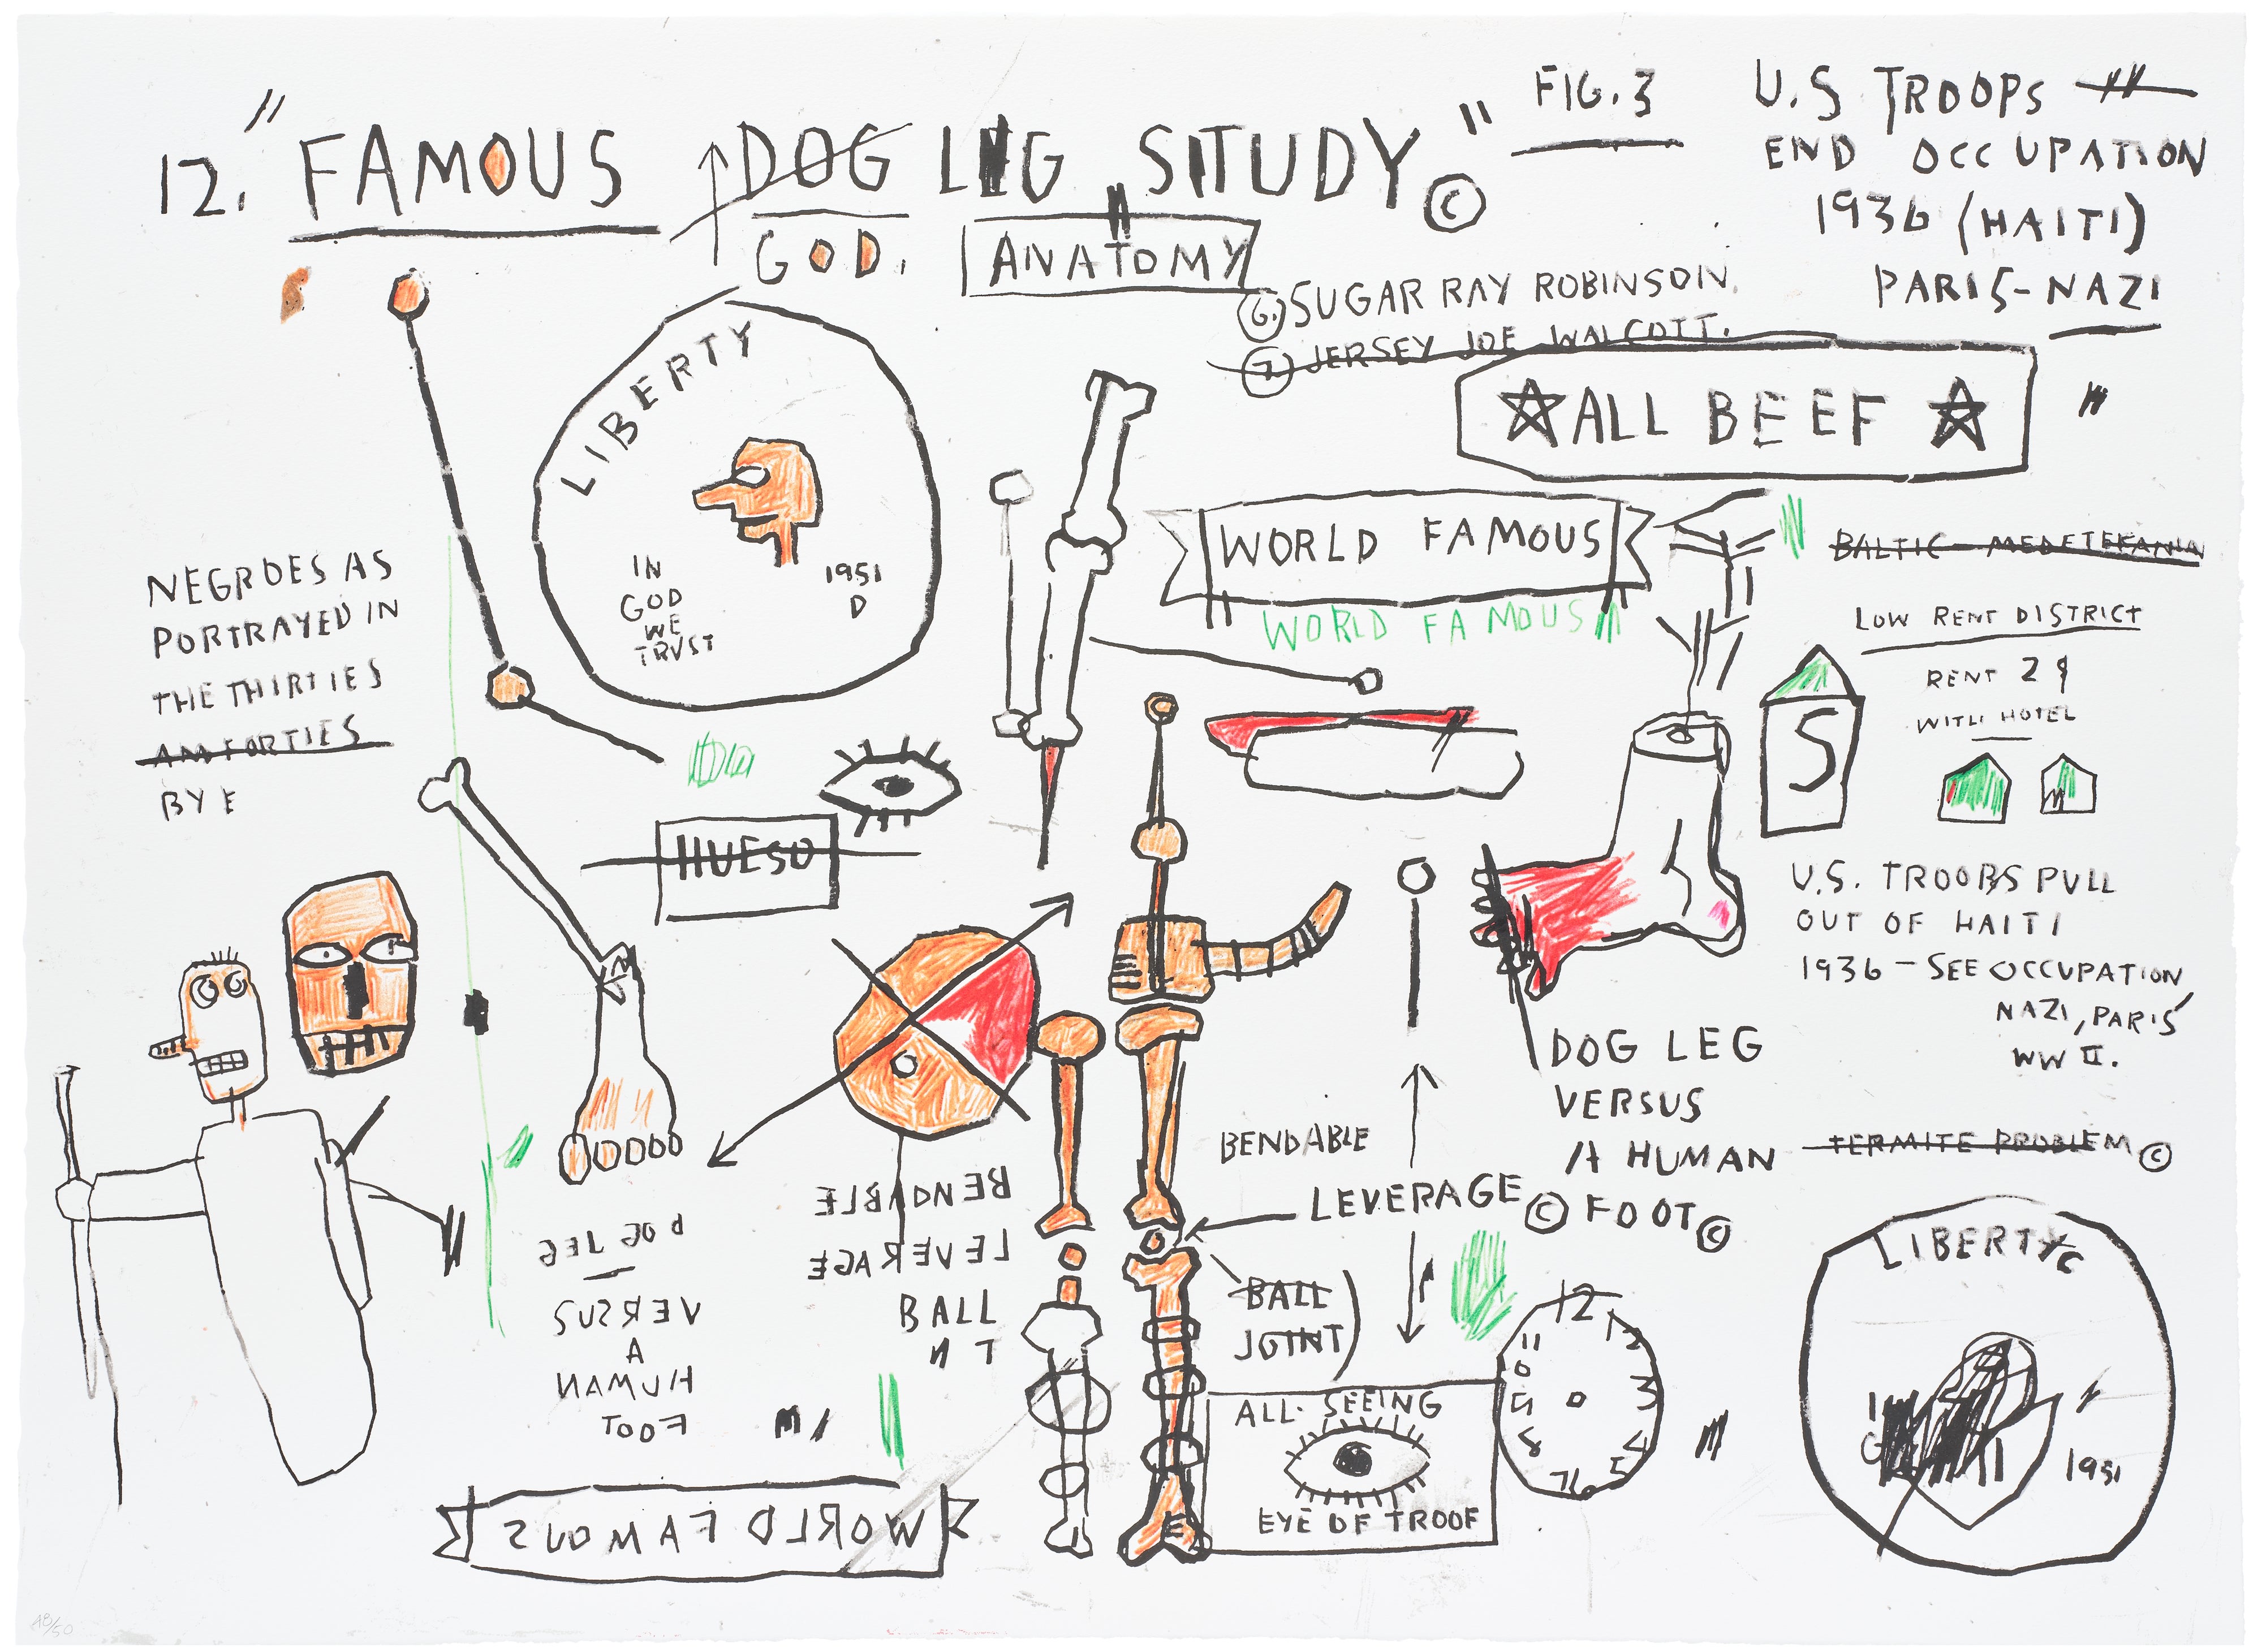 12. "FAMOUS DOG LEG STUDY" ©
GOD.
ANATOMY
FIG. 3
U.S TROOPS
END OCCUPATION
1936 (HAITI)
PARIS-NAZI
6. SUGAR RAY ROBINSON.
7. JERSEY JOE WALCOTT.
☆ALL BEEF ☆
LIBERTY
IN
GOD
WE
TRVST
1951
D
WORLD FAMOUS
WORLD FAMOUS
BALTIC
LOW RENT DISTRICT
RENT 2 $
WITH HOTEL
S
NEGROES AS
PORTRAYED IN
THE THIRTIES
AM FORTIES
BY E
HUESO
U.S. TROOPS PULL
OUT OF HAITI
1936 - SEE OCCUPATION
NAZI, PARIS
WW II.
DOG LEG
VERSUS
A HUMAN
FOOT ©
BENDABLE
LEVERAGE ©
BALL
JOINT
TERMITE PROBLEM ©
DOG LEG
VERSUS
A
HUMAN
FOOT
BENDABLE
LEVERAGE
BALL
N T
ALL. SEEING
EYE OF TROOF
12
1
2
3
4
5
6
7
8
9
10
11
LIBERTY
1951
WORLD FAMOUS
E
A8/50